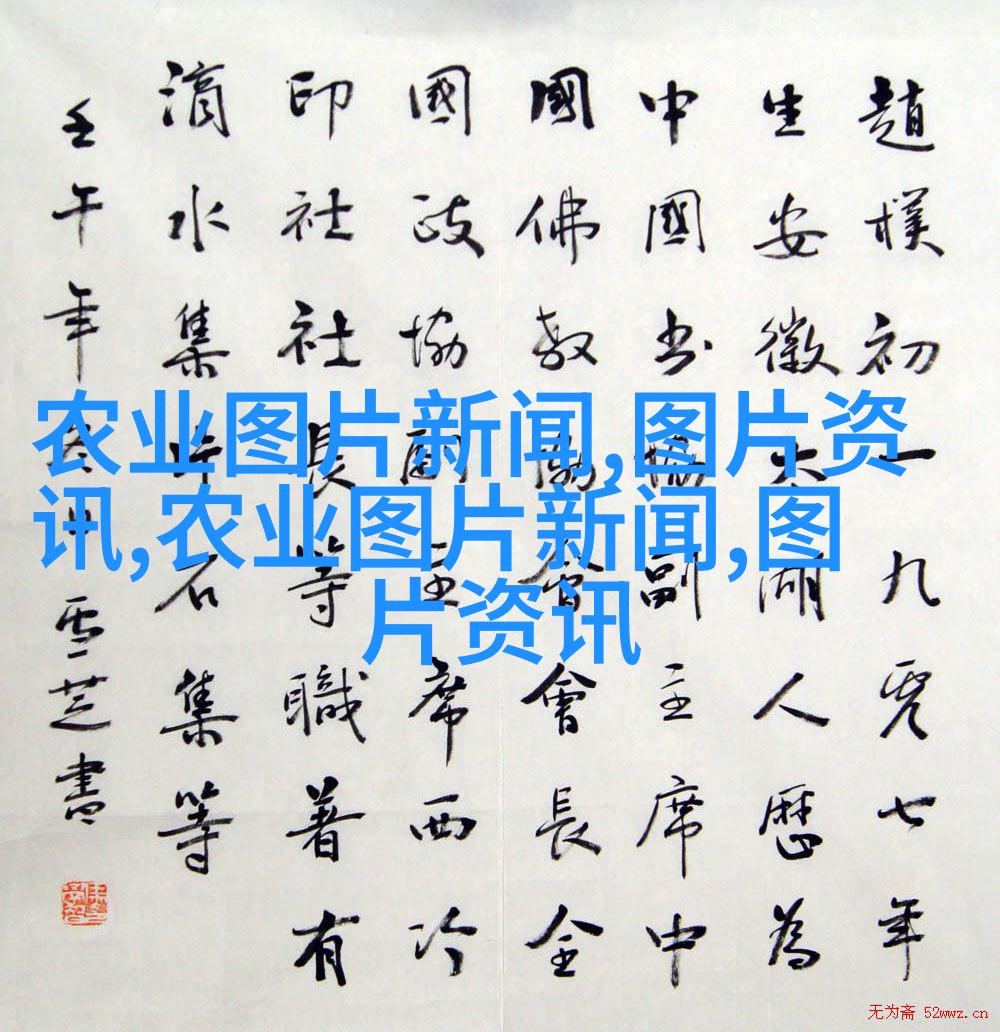 趙樸初一九零七年
生安徽太湖人歷為
中國書協副主席中
國佛教協會會長全
國政協副主席西泠
印社社長等職著有
滴水集片石集等
壬午年雪芝書
农业图片新闻,图片资
讯,农业图片新闻,图
片资讯
无为斋 52wwz.cn